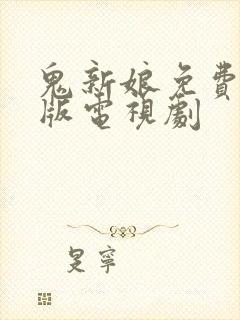 鬼新娘免費
版電視劇
旻寧